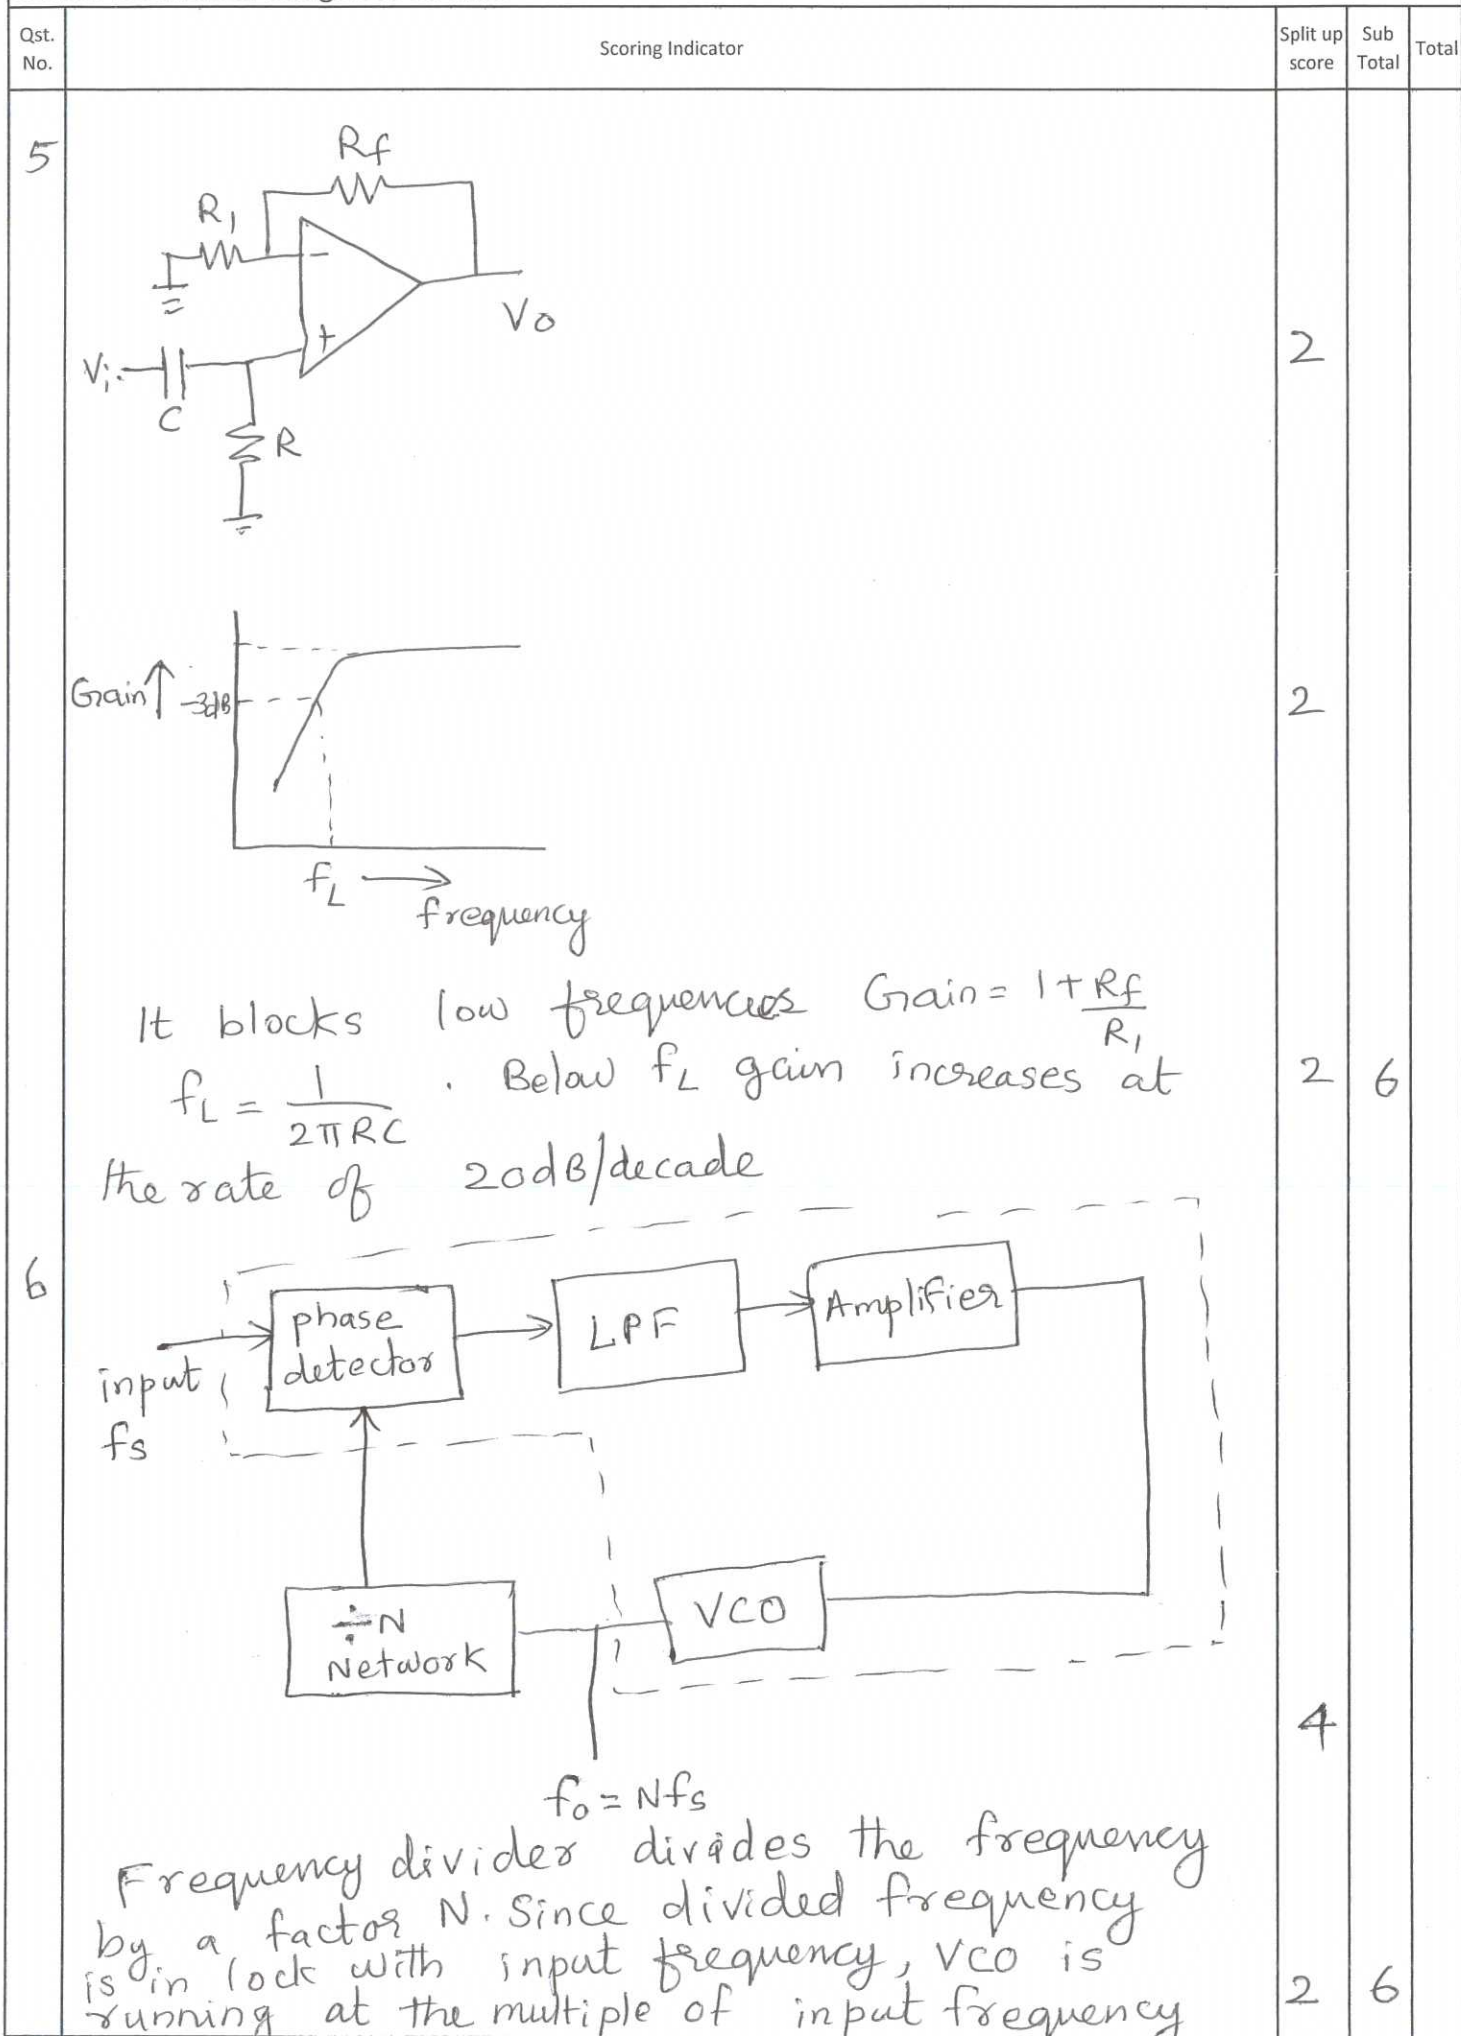 Qst. No.
Scoring Indicator
Split up score
Sub Total
Total
5
Rf
R1
−
+
Vo
Vi
C
R
2
Gain ↑ -3dB
2
fL →
frequency
It blocks low frequencies Gain = 1 + Rf/R1
fL = 1/2πRC . Below fL gain increases at
2 6
the rate of 20dB/decade
6
phase detector
LPF
Amplifier
input
fs
÷N
Network
VCO
4
fo = Nfs
Frequency divider divides the frequency
by a factor N. Since divided frequency
is in lock with input frequency, VCO is
running at the multiple of input frequency
2 6